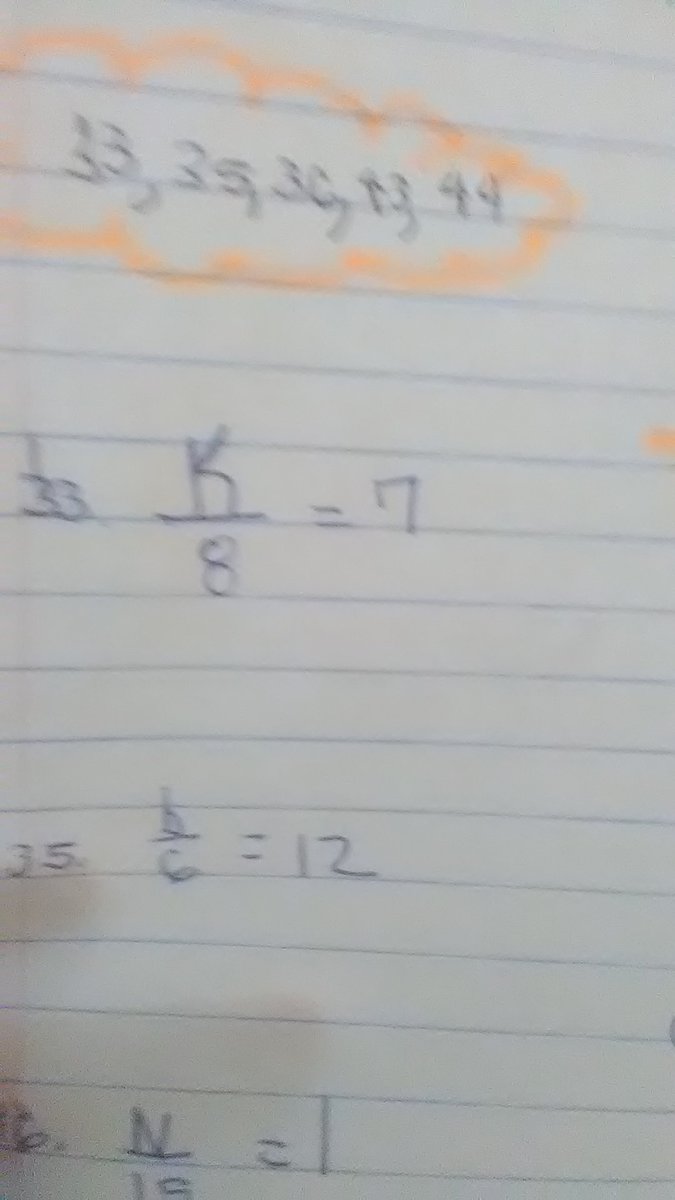 33, 35, 36, 43, 44
33 K/8 = 7
35. b/6 = 12
6. N/ = 1